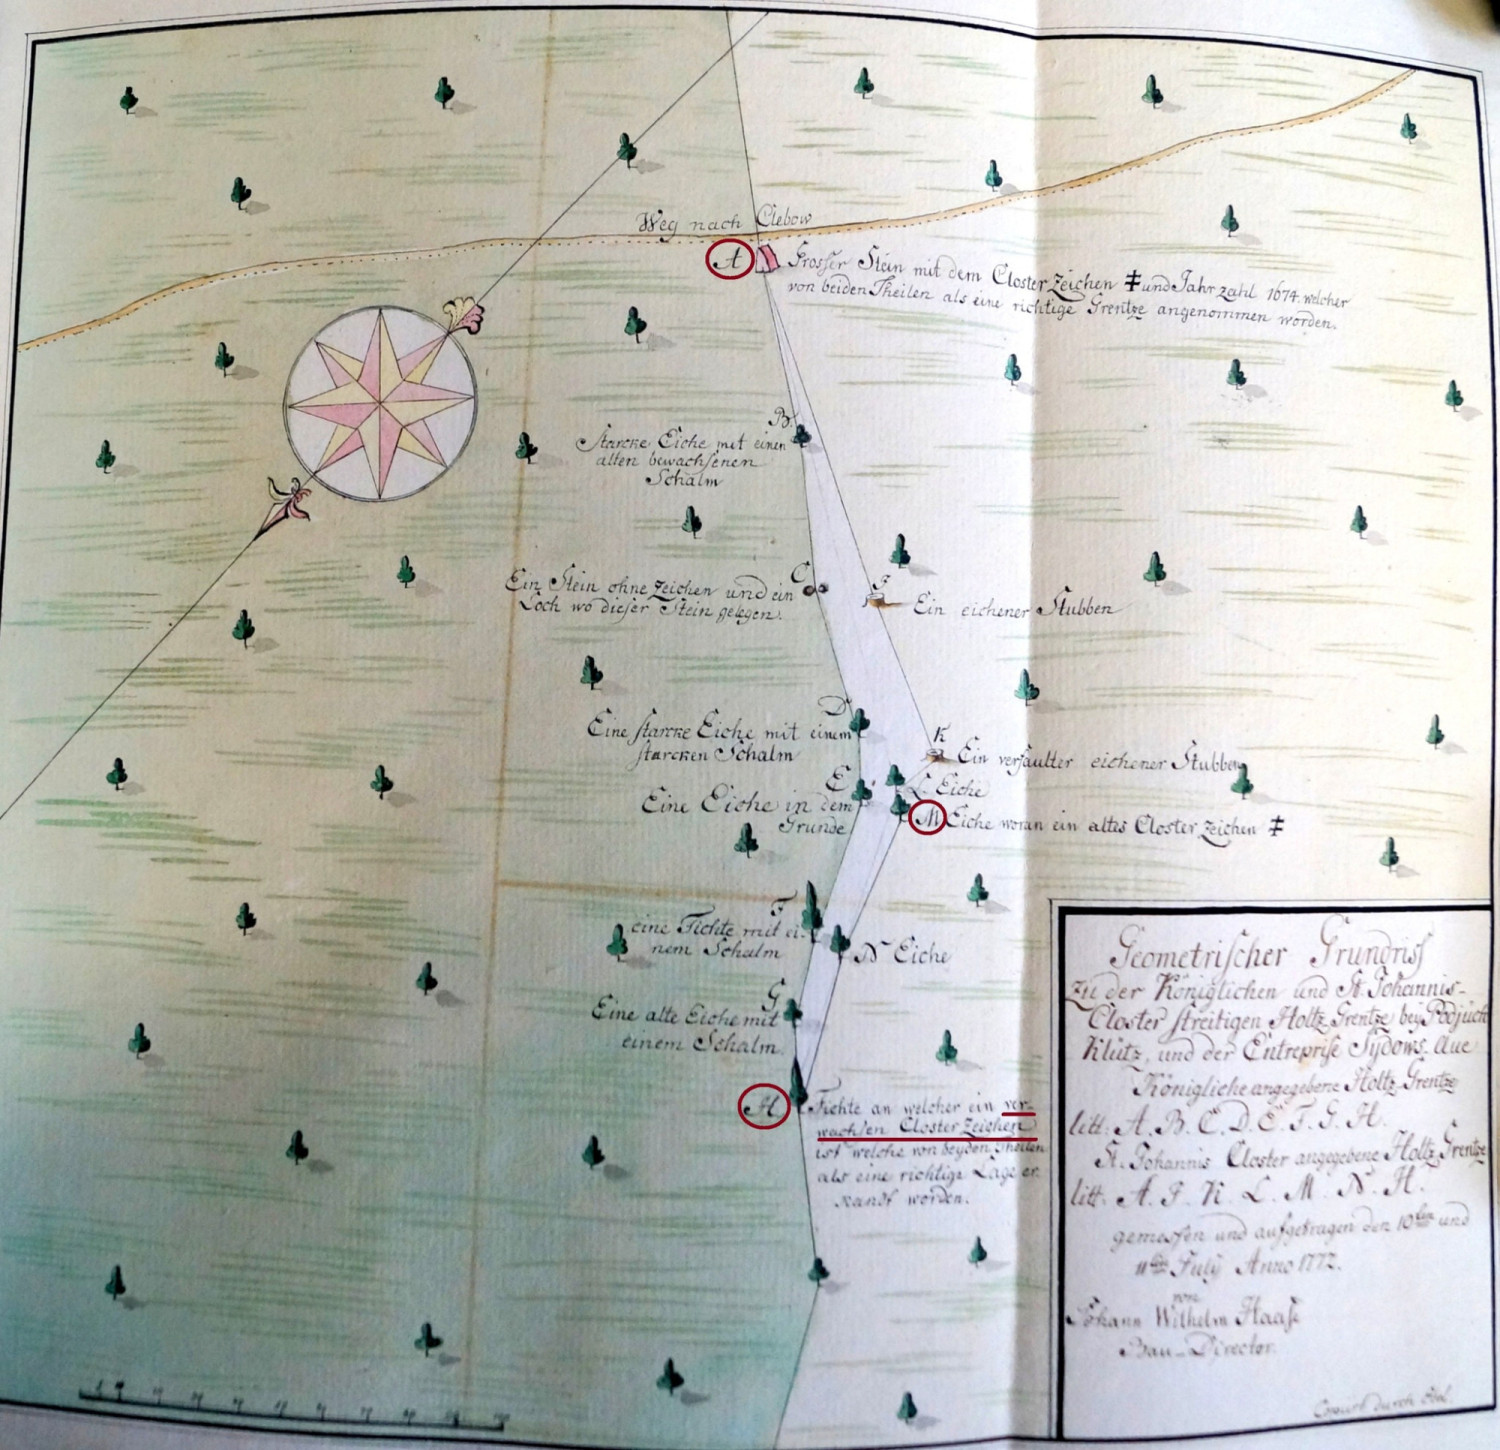 Weg nach Clebow
A
Grosser Stein mit dem Closter Zeichen ‡ und Jahr zahl 1674. welcher
von beiden Theilen als eine richtige Grentze angenommen worden.
B.
Starcke Eiche mit einen
alten bewachsenen
Schalm
C
Ein Stein ohne Zeichen und ein
Loch wo dieser Stein gelegen.
J
Ein eichener Stubben
D
Eine starcke Eiche mit einem
starcken Schalm
K
Ein verfaulter eichener Stubben
E
Eine Eiche in dem
Grunde
L Eiche
M Eiche woran ein altes Closter Zeichen ‡
F
eine Fichte mit ei-
nem Schalm
N Eiche
G
Eine alte Eiche mit
einem Schalm.
H
Fichte an welcher ein ver-
wachsen Closter Zeichen
ist welche von beyden Theilen
als eine richtige Lage er-
kandt worden.
Geometrischer Grundriss
zu der Königlichen und St. Johannis-
Closter streitigen Holtz Grentze bey Podjuch
Klütz, und der Entreprise Sydows-Aue
Königliche angegebene Holtz Grentze
litt: A. B. C. D. E. F. G. H.
St. Johannis Closter angegebene Holtz Grentze
litt. A. J. K. L. M. N. H.
gemessen und aufgetragen den 10ten und
11ten July Anno 1772.
von
Johann Wilhelm Haase
Bau-Director.
durch